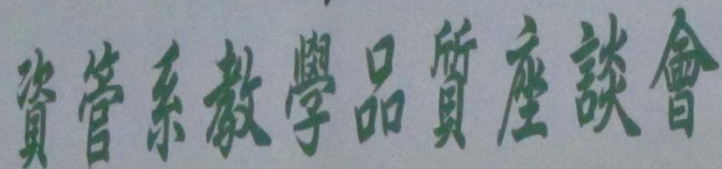 資管系教學品質座談會